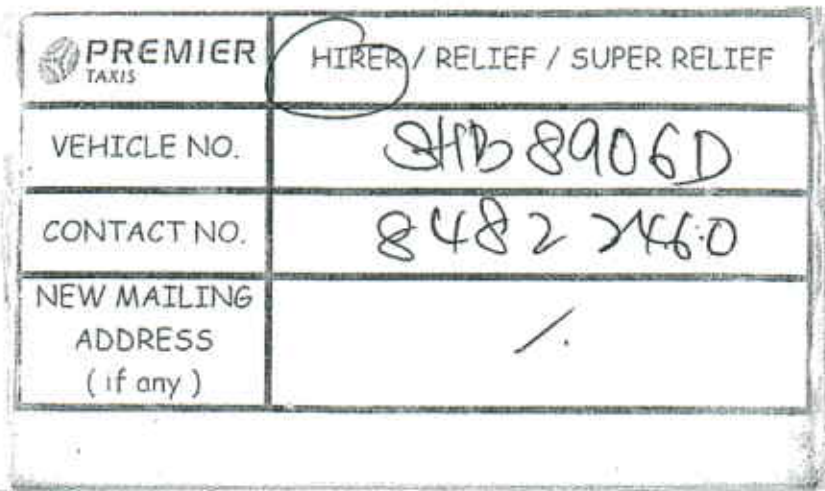 PREMIER
TAXIS
HIRER / RELIEF / SUPER RELIEF
VEHICLE NO. SHB 8906D
CONTACT NO. 8482 2460
NEW MAILING
ADDRESS
( if any )